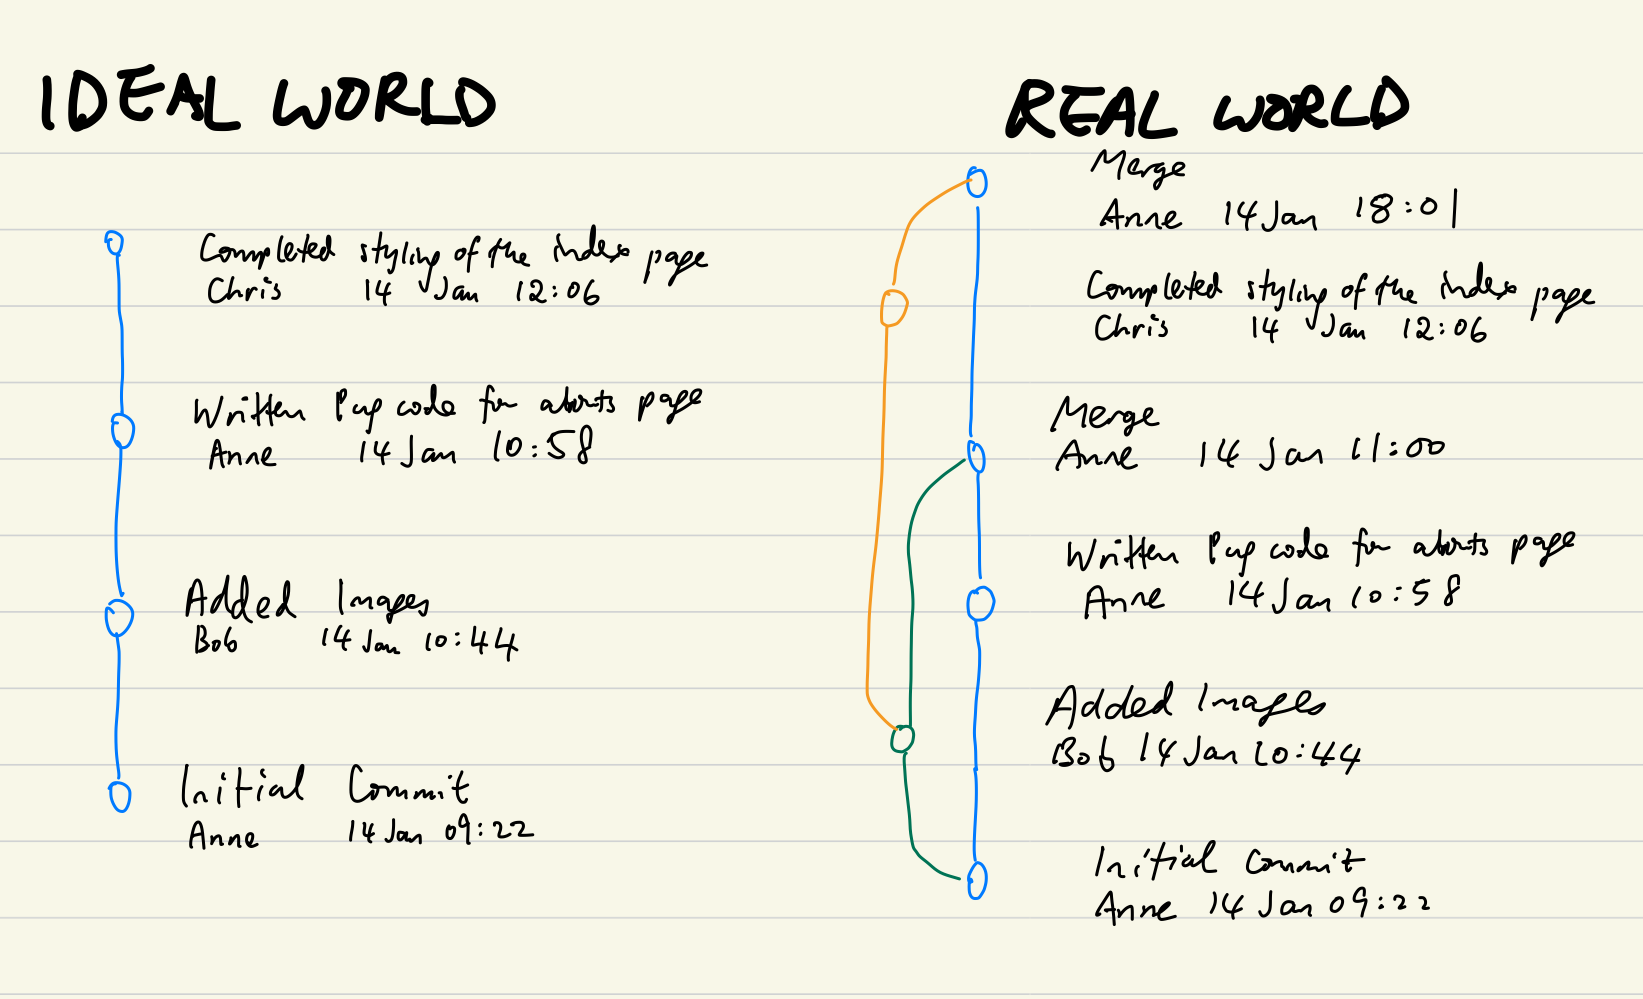 IDEAL WORLD
Completed styling of the index page
Chris 14 Jan 12:06
Written Pug code for abouts page
Anne 14 Jan 10:58
Added Images
Bob 14 Jan 10:44
Initial Commit
Anne 14 Jan 09:22
REAL WORLD
Merge
Anne 14 Jan 18:01
Completed styling of the index page
Chris 14 Jan 12:06
Merge
Anne 14 Jan 11:00
Written Pug code for abouts page
Anne 14 Jan 10:58
Added Images
Bob 14 Jan 10:44
Initial Commit
Anne 14 Jan 09:22